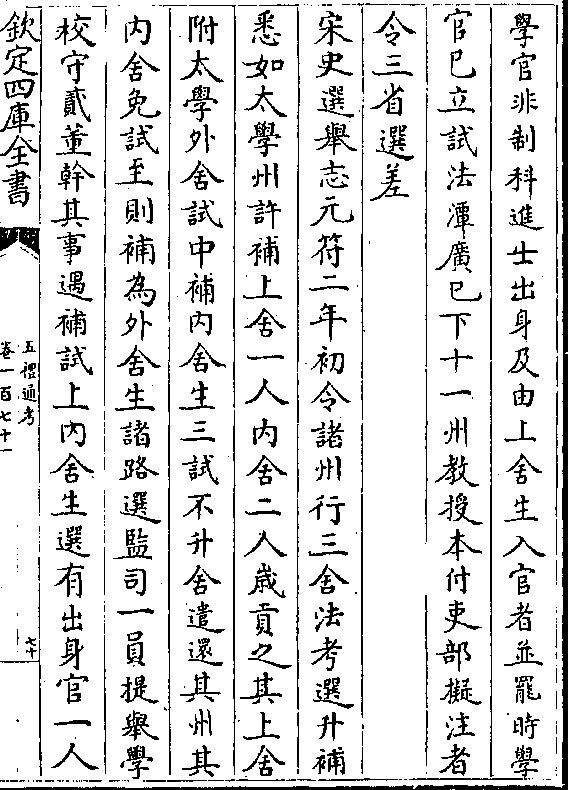 學官非制科進士出身及由上舍生入官者並罷時學
官已立試法潭廣已下十一州教授本付吏部擬注者
令三省選差
宋史選舉志元符二年初令諸州行三舍法考選升補
悉如太學州許補上舍一人内舍二人歳貢之其上舍
附太學外舍試中補内舍生三試不升舍遣還其州其
内舍免試至則補為外舍生諸路選監司一員提舉學
校守貳董幹其事遇補試上内舍生選有出身官一人
欽定四庫全書
五禮通考
卷一百七十一
七十